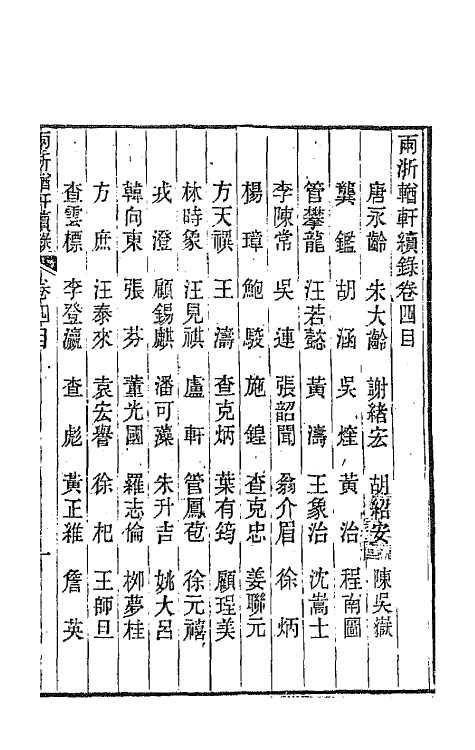 兩浙輶軒續錄卷四目
唐永齡　朱大齡　謝緒宏　胡紹安　陳吳嶽
龔鑑　胡涵　吳煃　黃治　程南圖
管攀龍　汪若懿　黃濤　王象治　沈嵩士
李陳常　吳連　張韶聞　翁介眉　徐炳
楊璋　鮑駿　施鍠　查克忠　姜聯元
方天禩　王濤　查克炳　葉有筠　顧珵美
林時象　汪見祺　盧軒　管鳳苞　徐元禧
戎澄　顧錫麒　潘可藻　朱升吉　姚大呂
韓向東　張芬　董光國　羅志倫　柳夢桂
方庶　汪泰來　袁宏譽　徐杞　王師旦
查雲標　李登瀛　查彪　黃正維　詹英
兩浙輶軒續錄　卷四目　一